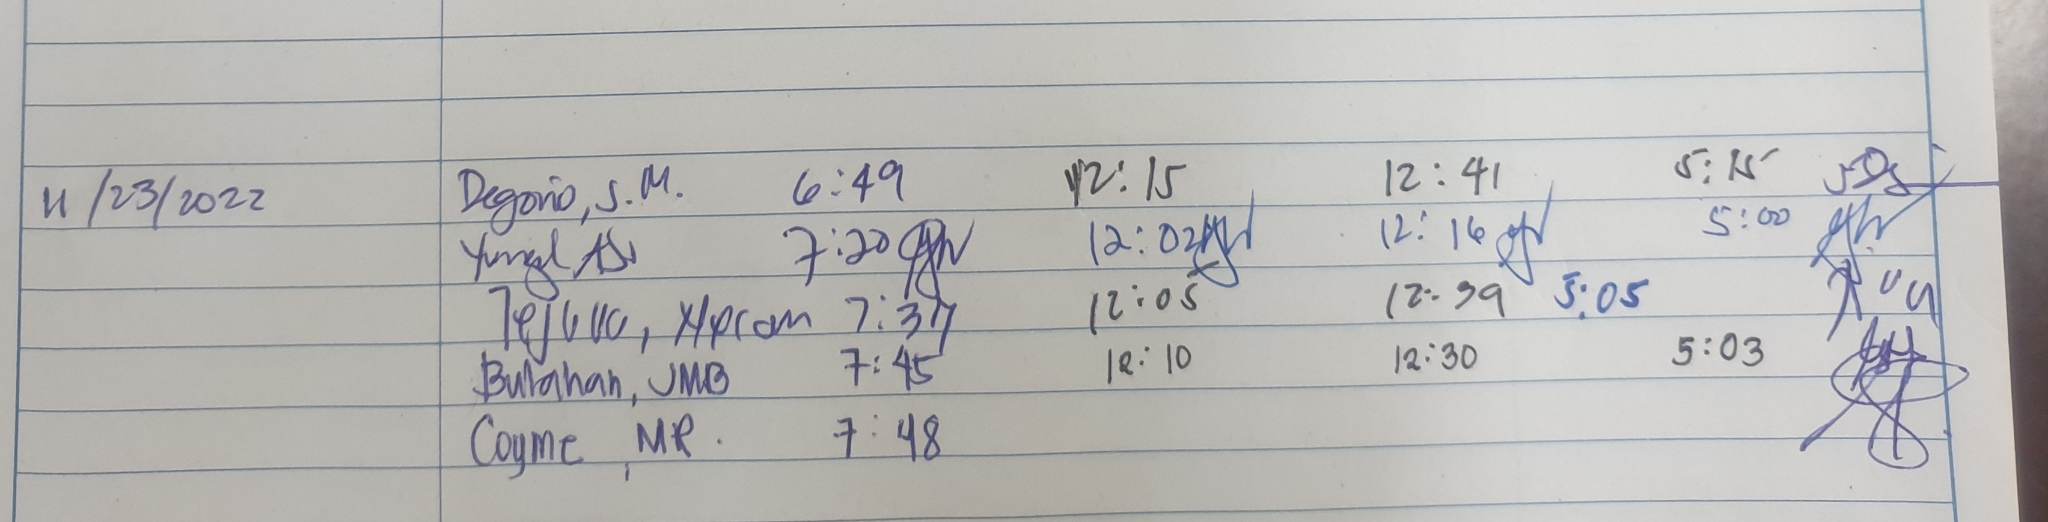 11/23/2022 Degorio, S.M. 6:49 12:15 12:41 5:15
7:20 12:02 12:16 5:00
7:37 12:05 12:39 5:05
Bulahan, JMB 7:45 12:10 12:30 5:03
Coyme, MR. 7:48